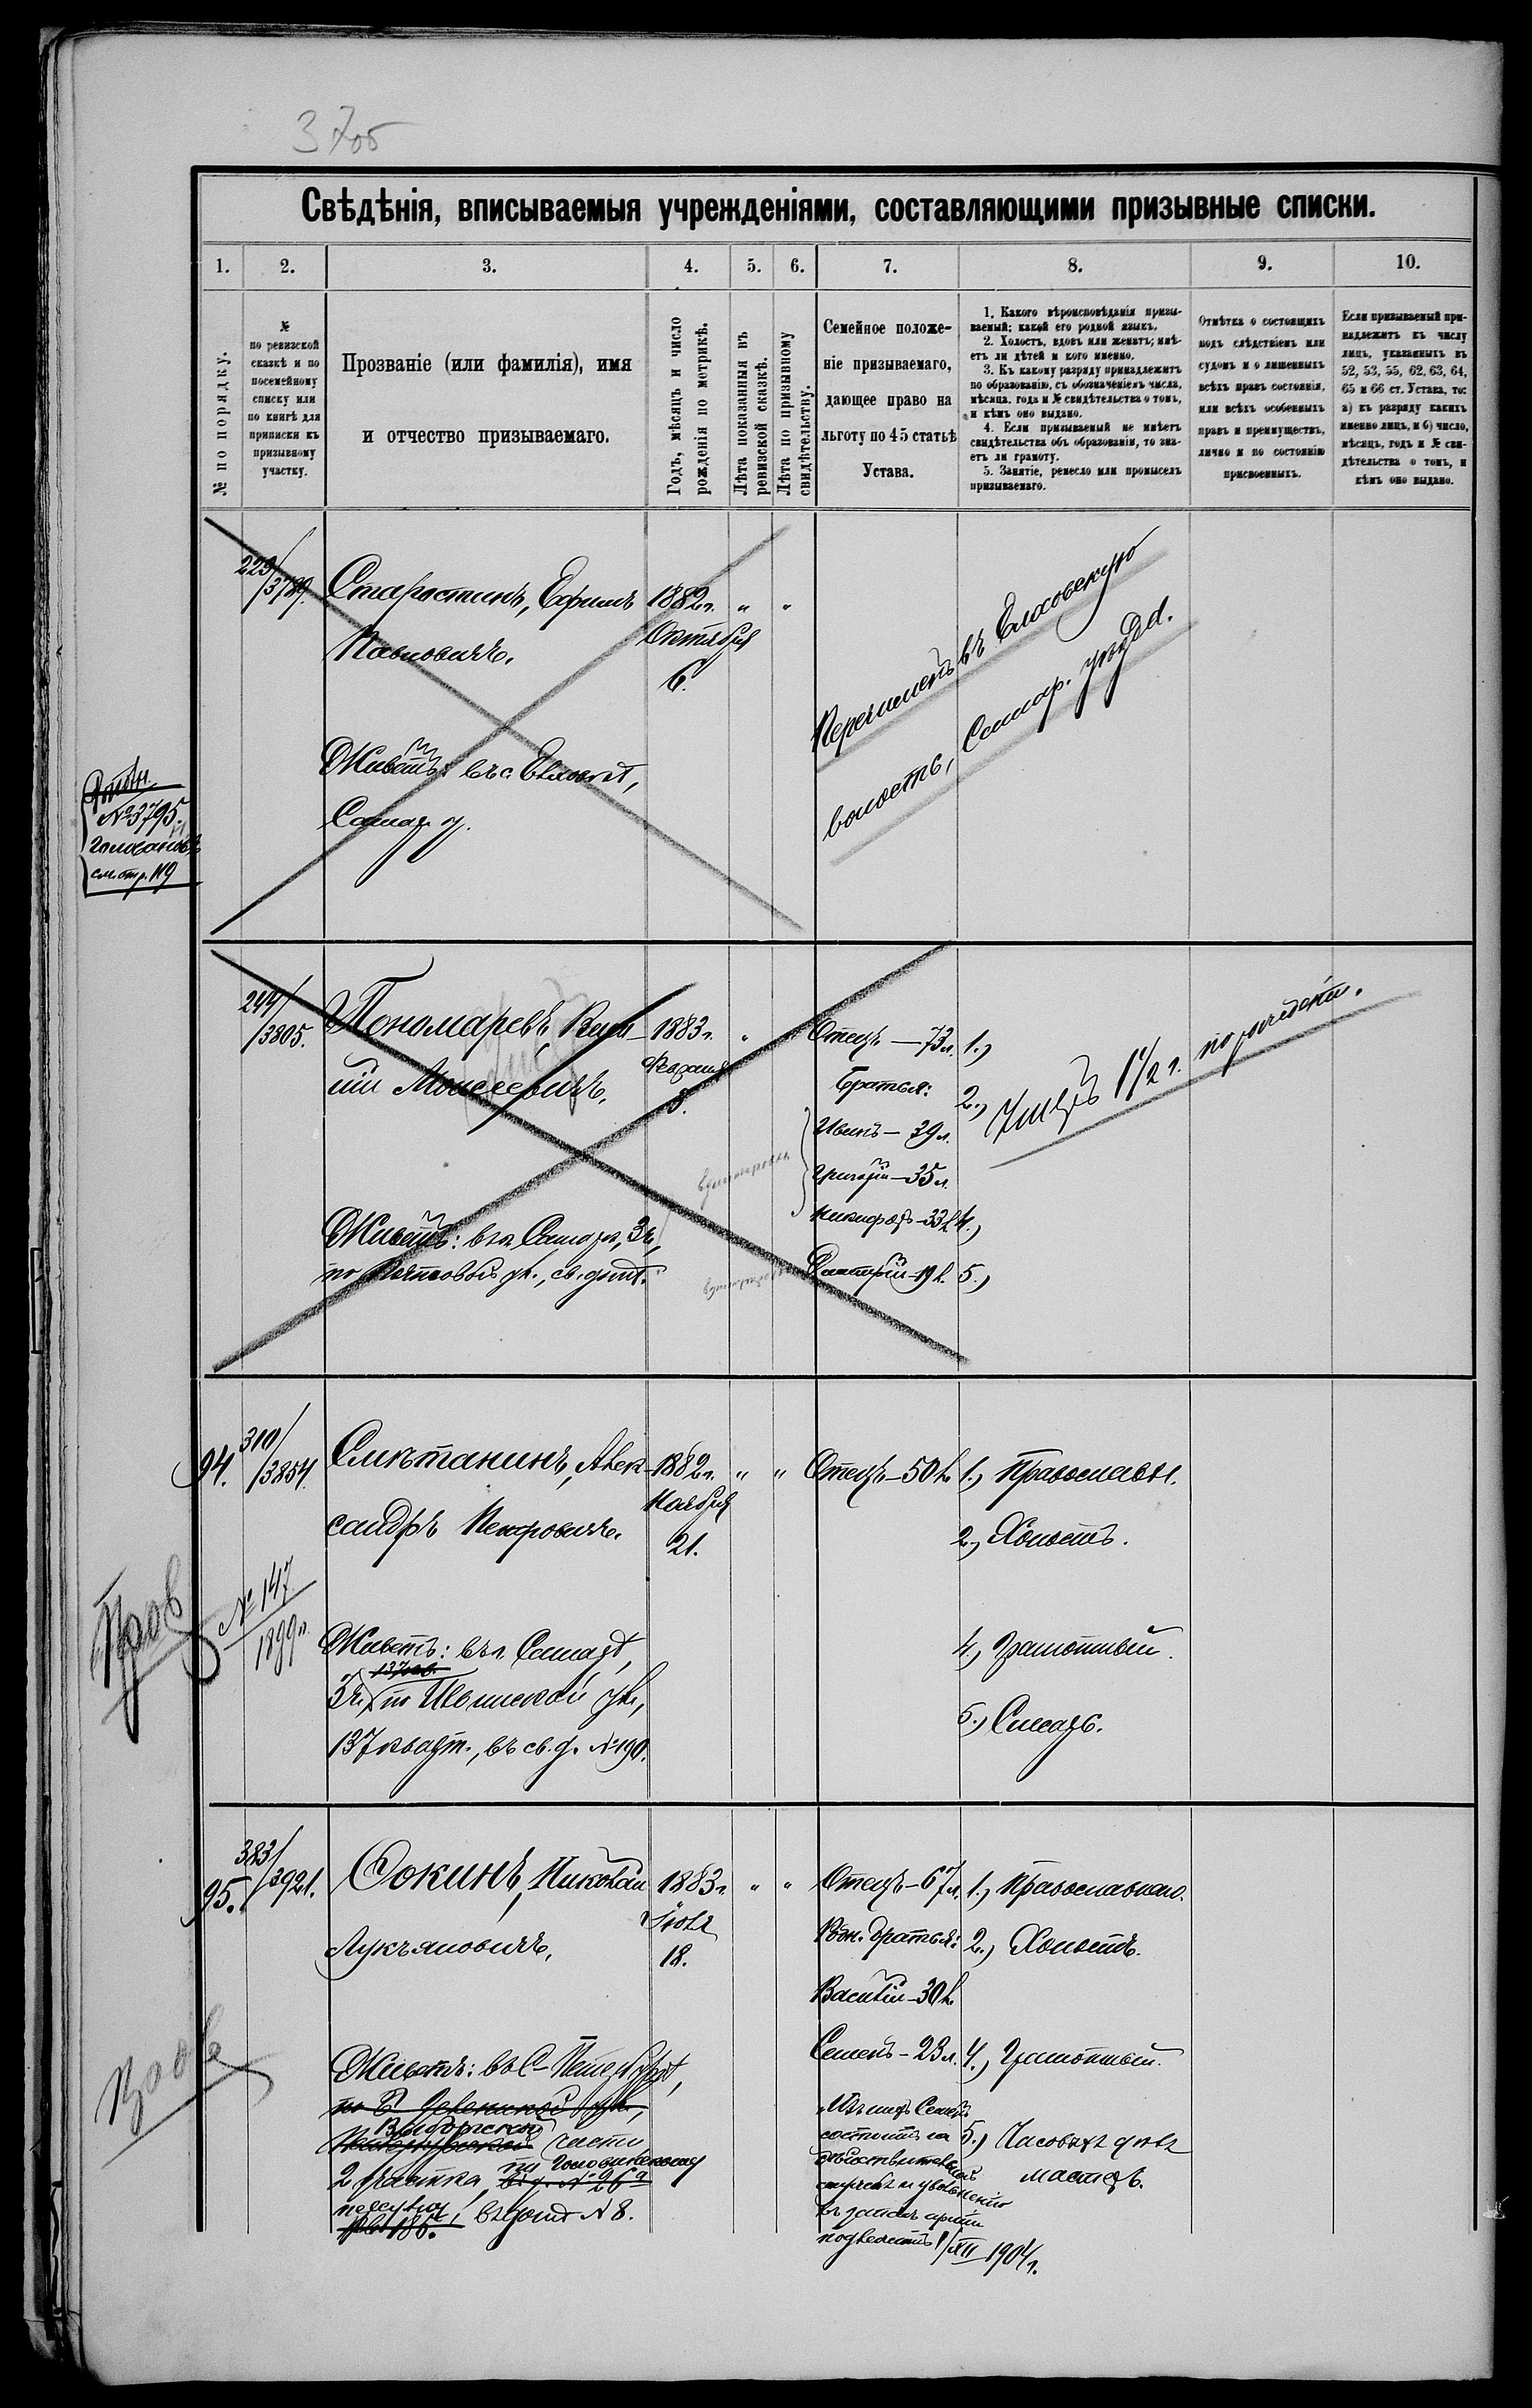 37об
Свѣдѣнія, вписываемыя учрежденіями, составляющими призывные списки.
1. 2. 3. 4. 5. 6. 7. 8. 9. 10.
№ по порядку.
№
по ревизской
сказкѣ и по
посемейному
списку или
по книгѣ для
приписки къ
призывному
участку.
Прозваніе (или фамилія), имя
и отчество призываемаго.
Годъ, мѣсяцъ и число
рожденія по метрикѣ.
Лѣта показанныя въ
ревизской сказкѣ.
Лѣта по призывному
свидѣтельству.
Семейное положе-
ніе призываемаго,
дающее право на
льготу по 45 статьѣ
Устава.
1. Какого вѣроисповѣданія призы-
ваемый; какой его родной языкъ.
2. Холостъ, вдовъ или женатъ; имѣ-
етъ ли дѣтей и кого именно.
3. Къ какому разряду принадлежитъ
по образованію, съ обозначеніемъ числа,
мѣсяца, года и № свидѣтельства о томъ,
и кѣмъ оно выдано.
4. Если призываемый не имѣетъ
свидѣтельства объ образованіи, то зна-
етъ ли грамоту.
5. Занятіе, ремесло или промыселъ
призываемаго.
Отмѣтка о состоящихъ
подъ слѣдствіемъ или
судомъ и о лишенныхъ
всѣхъ правъ состоянія,
или всѣхъ особенныхъ
правъ и преимуществъ,
лично и по состоянію
присвоенныхъ.
Если призываемый при-
надлежитъ къ числу
лицъ, указанныхъ въ
52, 53, 55, 62, 63, 64,
65 и 66 ст. Устава, то:
а) къ разряду какихъ
именно лицъ, и б) число,
мѣсяцъ, годъ и № сви-
дѣтельства о томъ, и
кѣмъ оно выдано.
223/3789.
Старостинъ, Ефимъ
Павловичъ.
1882 г.
Октября
6.
" "
Живетъ: въ с. Елховкѣ,
Самар. у.
Перечисленъ въ Елховскую
волость, Самар. уѣзд.
№ 3795.
см. стр. 119
244/3805.
Пономаревъ, Васи-
лій Моисеевичъ.
1883 г.
Февраля
8.
"
Отецъ — 73 л.
Братья:
Иванъ — 39 л.
Григорій — 35 л.
Никифоръ — 33 л.
Дмитрій — 19 л.
1.)
2.)
4.)
5.)
Живетъ: въ г. Самарѣ, 3 ч.,
по Полевой ул., св. домѣ.
94.
310/3854.
Смѣтанинъ, Алек-
сандръ Петровичъ.
1882 г.
Ноября
21.
" "
Отецъ — 50 л.
1.) Православн.
2.) Холостъ.
4.) Грамотный.
5.) Слесарь.
№ 147
1899 г.
Живетъ: въ г. Самарѣ,
137 кв.
3 ч., по Ильинской ул.,
137 кварт., въ св. д. № 190.
Пров
95.
383/3921.
Сокинъ, Николай
Лукъяновичъ.
1883 г.
Іюля
18.
" "
Отецъ — 67 л.
Родн. братья:
Василій — 30 л.
Семенъ — 23 л.
1.) Православнаго.
2.) Холостъ.
4.) Грамотный.
5.) Часовыхъ дѣлъ
мастеръ.
Живетъ: въ С-Петербургѣ,
Выборгской
части
2 участка, по Головинскому
переулку, въ домѣ № 8.
Изъ нихъ Семенъ
состоитъ на
дѣйствительной
службѣ и увольненію
въ запасъ арміи
подлежитъ 1/XII 1904 г.
Пров